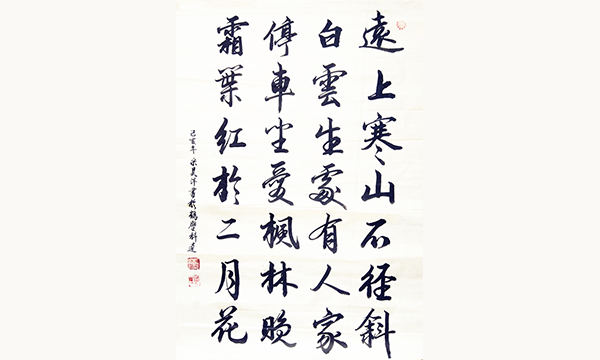 遠上寒山石徑斜
白雲生處有人家
停車坐愛楓林晚
霜葉紅於二月花
己亥年 書於